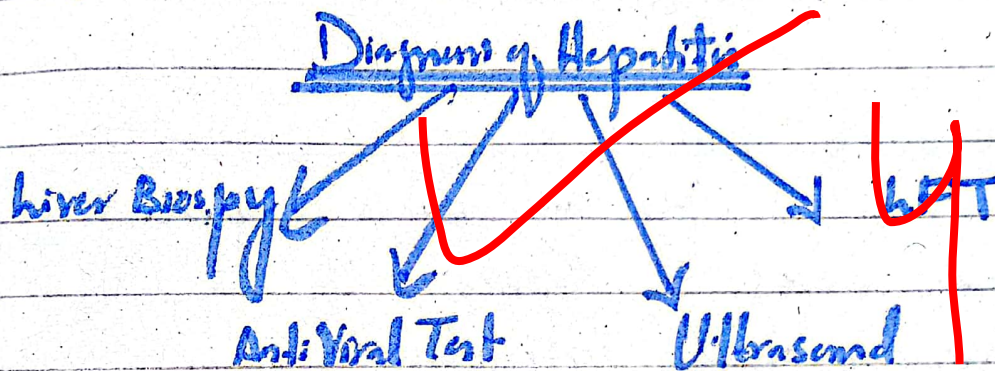 Diagnosis of Hepatitis
Liver Biospy
LFT
Anti Viral Test
Ultrasound
4